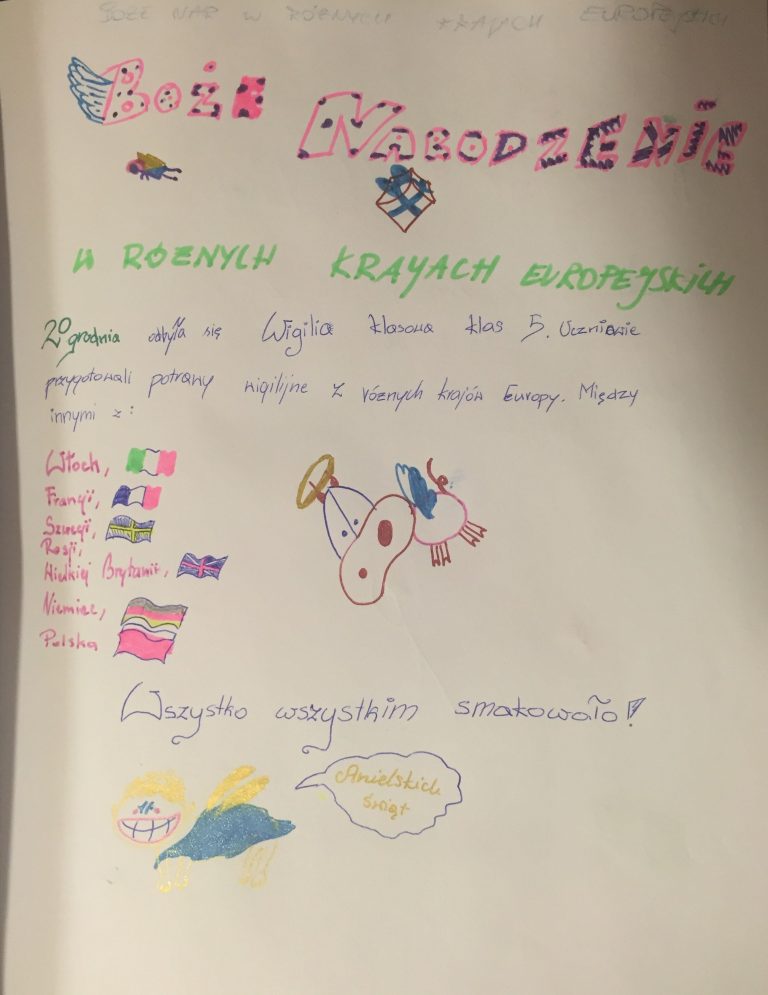 BOŻE NAR W RÓŻNYCH KRAJACH EUROPEJSKI
BOŻE NARODZENIE
W RÓZNYCH KRAYACH EUROPEJSKICH
20 grudnia odbyła się Wigilia klasowa klas 5. Uczniowie
przygotowali potrawy wigilijne z różnych krajów Europy. Między
innymi z:
Włoch,
Francji,
Szwecji,
Rosji,
Wielkiej Brytanii,
Niemiec,
Polska
Wszystko wszystkim smakowało!
Anielskich
świąt